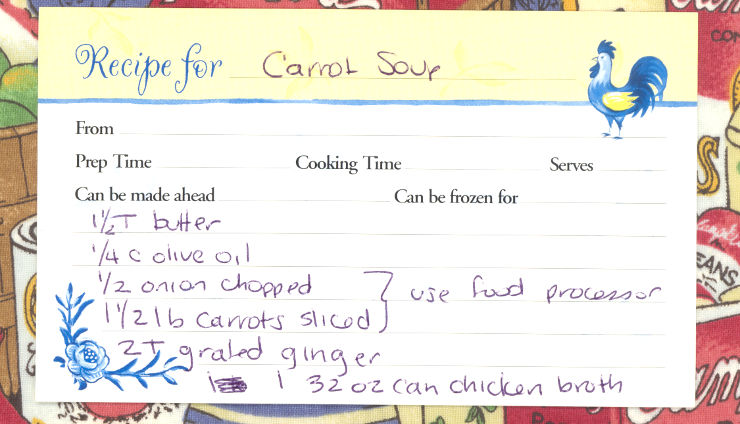 Recipe for Carrot Soup
From
Prep Time Cooking Time Serves
Can be made ahead Can be frozen for
1 1/2 T butter
1/4 c olive oil
1/2 onion chopped
1 1/2 lb carrots sliced } use food processor
2 T grated ginger
1 32 oz can chicken broth